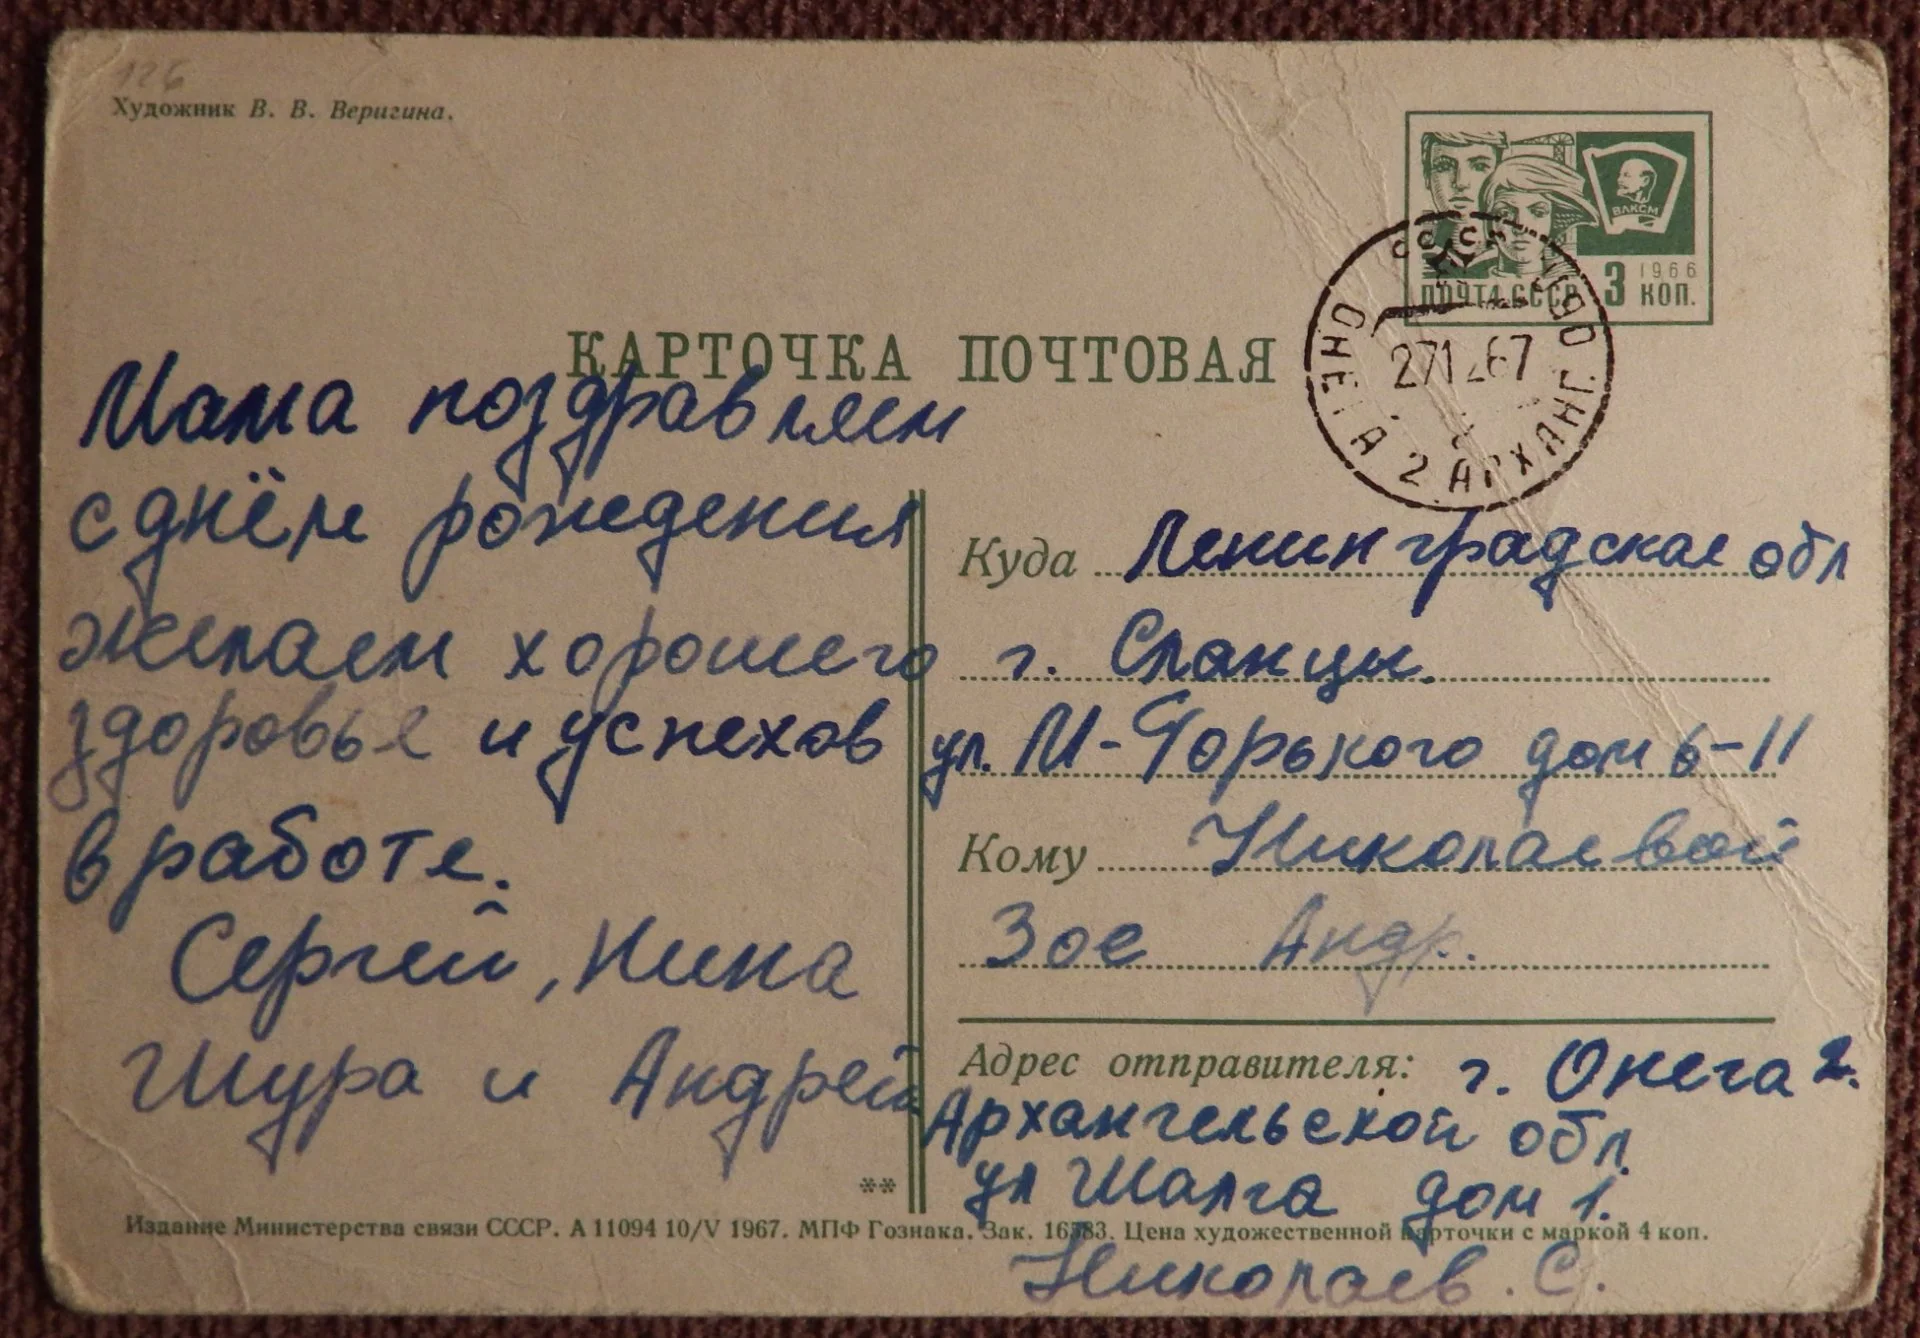 126
Художник В. В. Веригина.
ВЛКСМ
ПОЧТА СССР 3 1966 КОП.
КАРТОЧКА ПОЧТОВАЯ
ОНЕГА 2 АРХАНГ. ОБЛ
271267
Мама поздравляем
с днём рождения
желаем хорошего
здоровье и успехов
в работе.
Сергей, Нина
Шура и Андрей
Куда Ленинградская обл
г. Сланцы.
ул. М-Горького дом 6-11
Кому Николаевой
Зое Андр.
Адрес отправителя: г. Онега 2.
Архангельской обл.
ул Шалга дом 1.
Николаев. С.
**
Издание Министерства связи СССР. А 11094 10/V 1967. МПФ Гознака. Зак. 16583. Цена художественной карточки с маркой 4 коп.